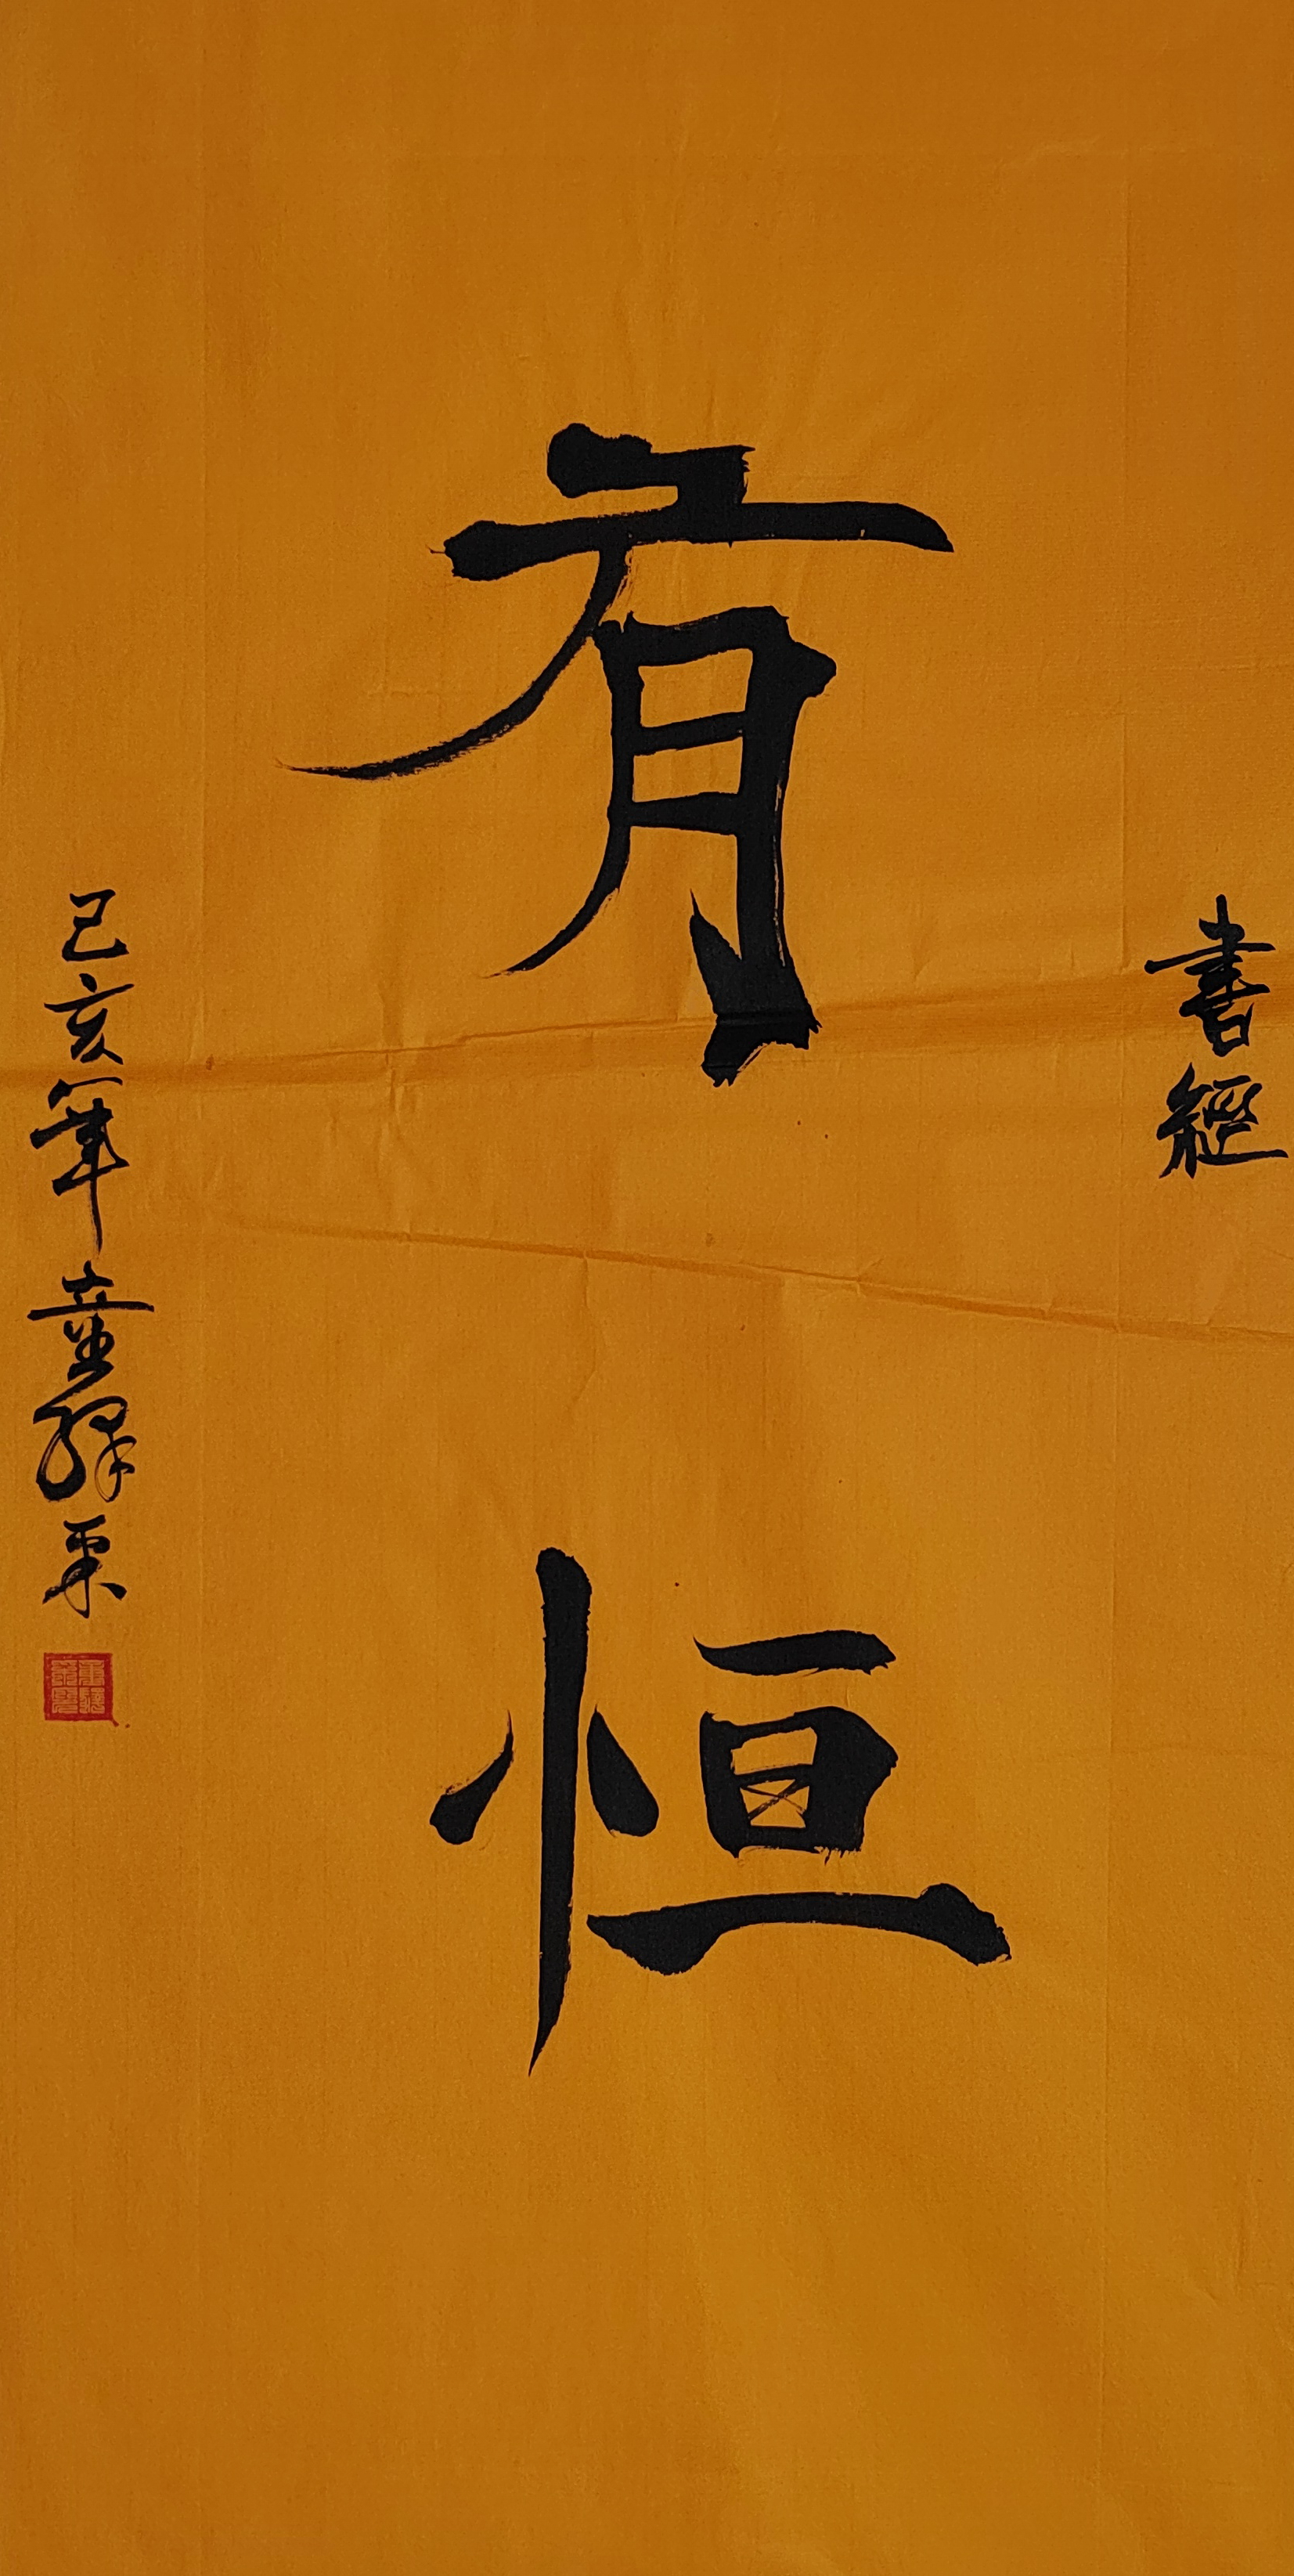 書經
有恒
己亥年童驛栗